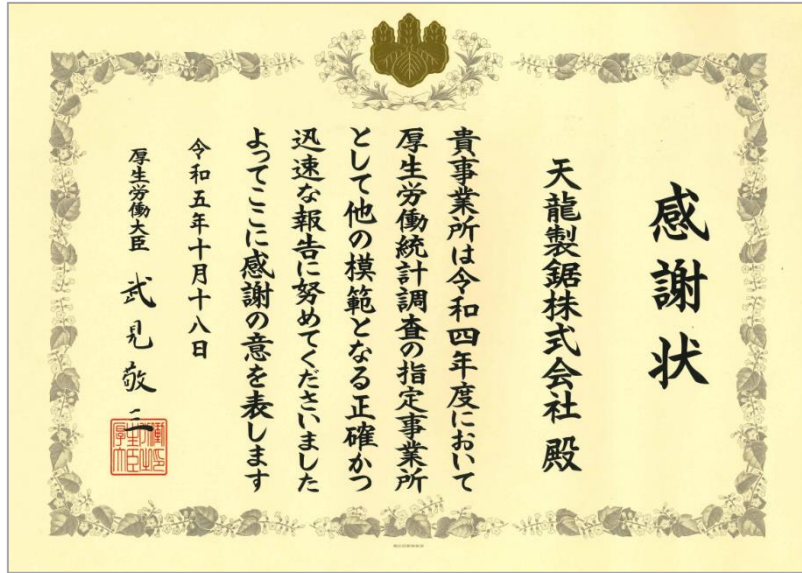 感謝状
天龍製鋸株式会社 殿
貴事業所は令和四年度において
厚生労働統計調査の指定事業所
として他の模範となる正確かつ
迅速な報告に努めてくださいました
よってここに感謝の意を表します
令和五年十月十八日
厚生労働大臣 武見敬三